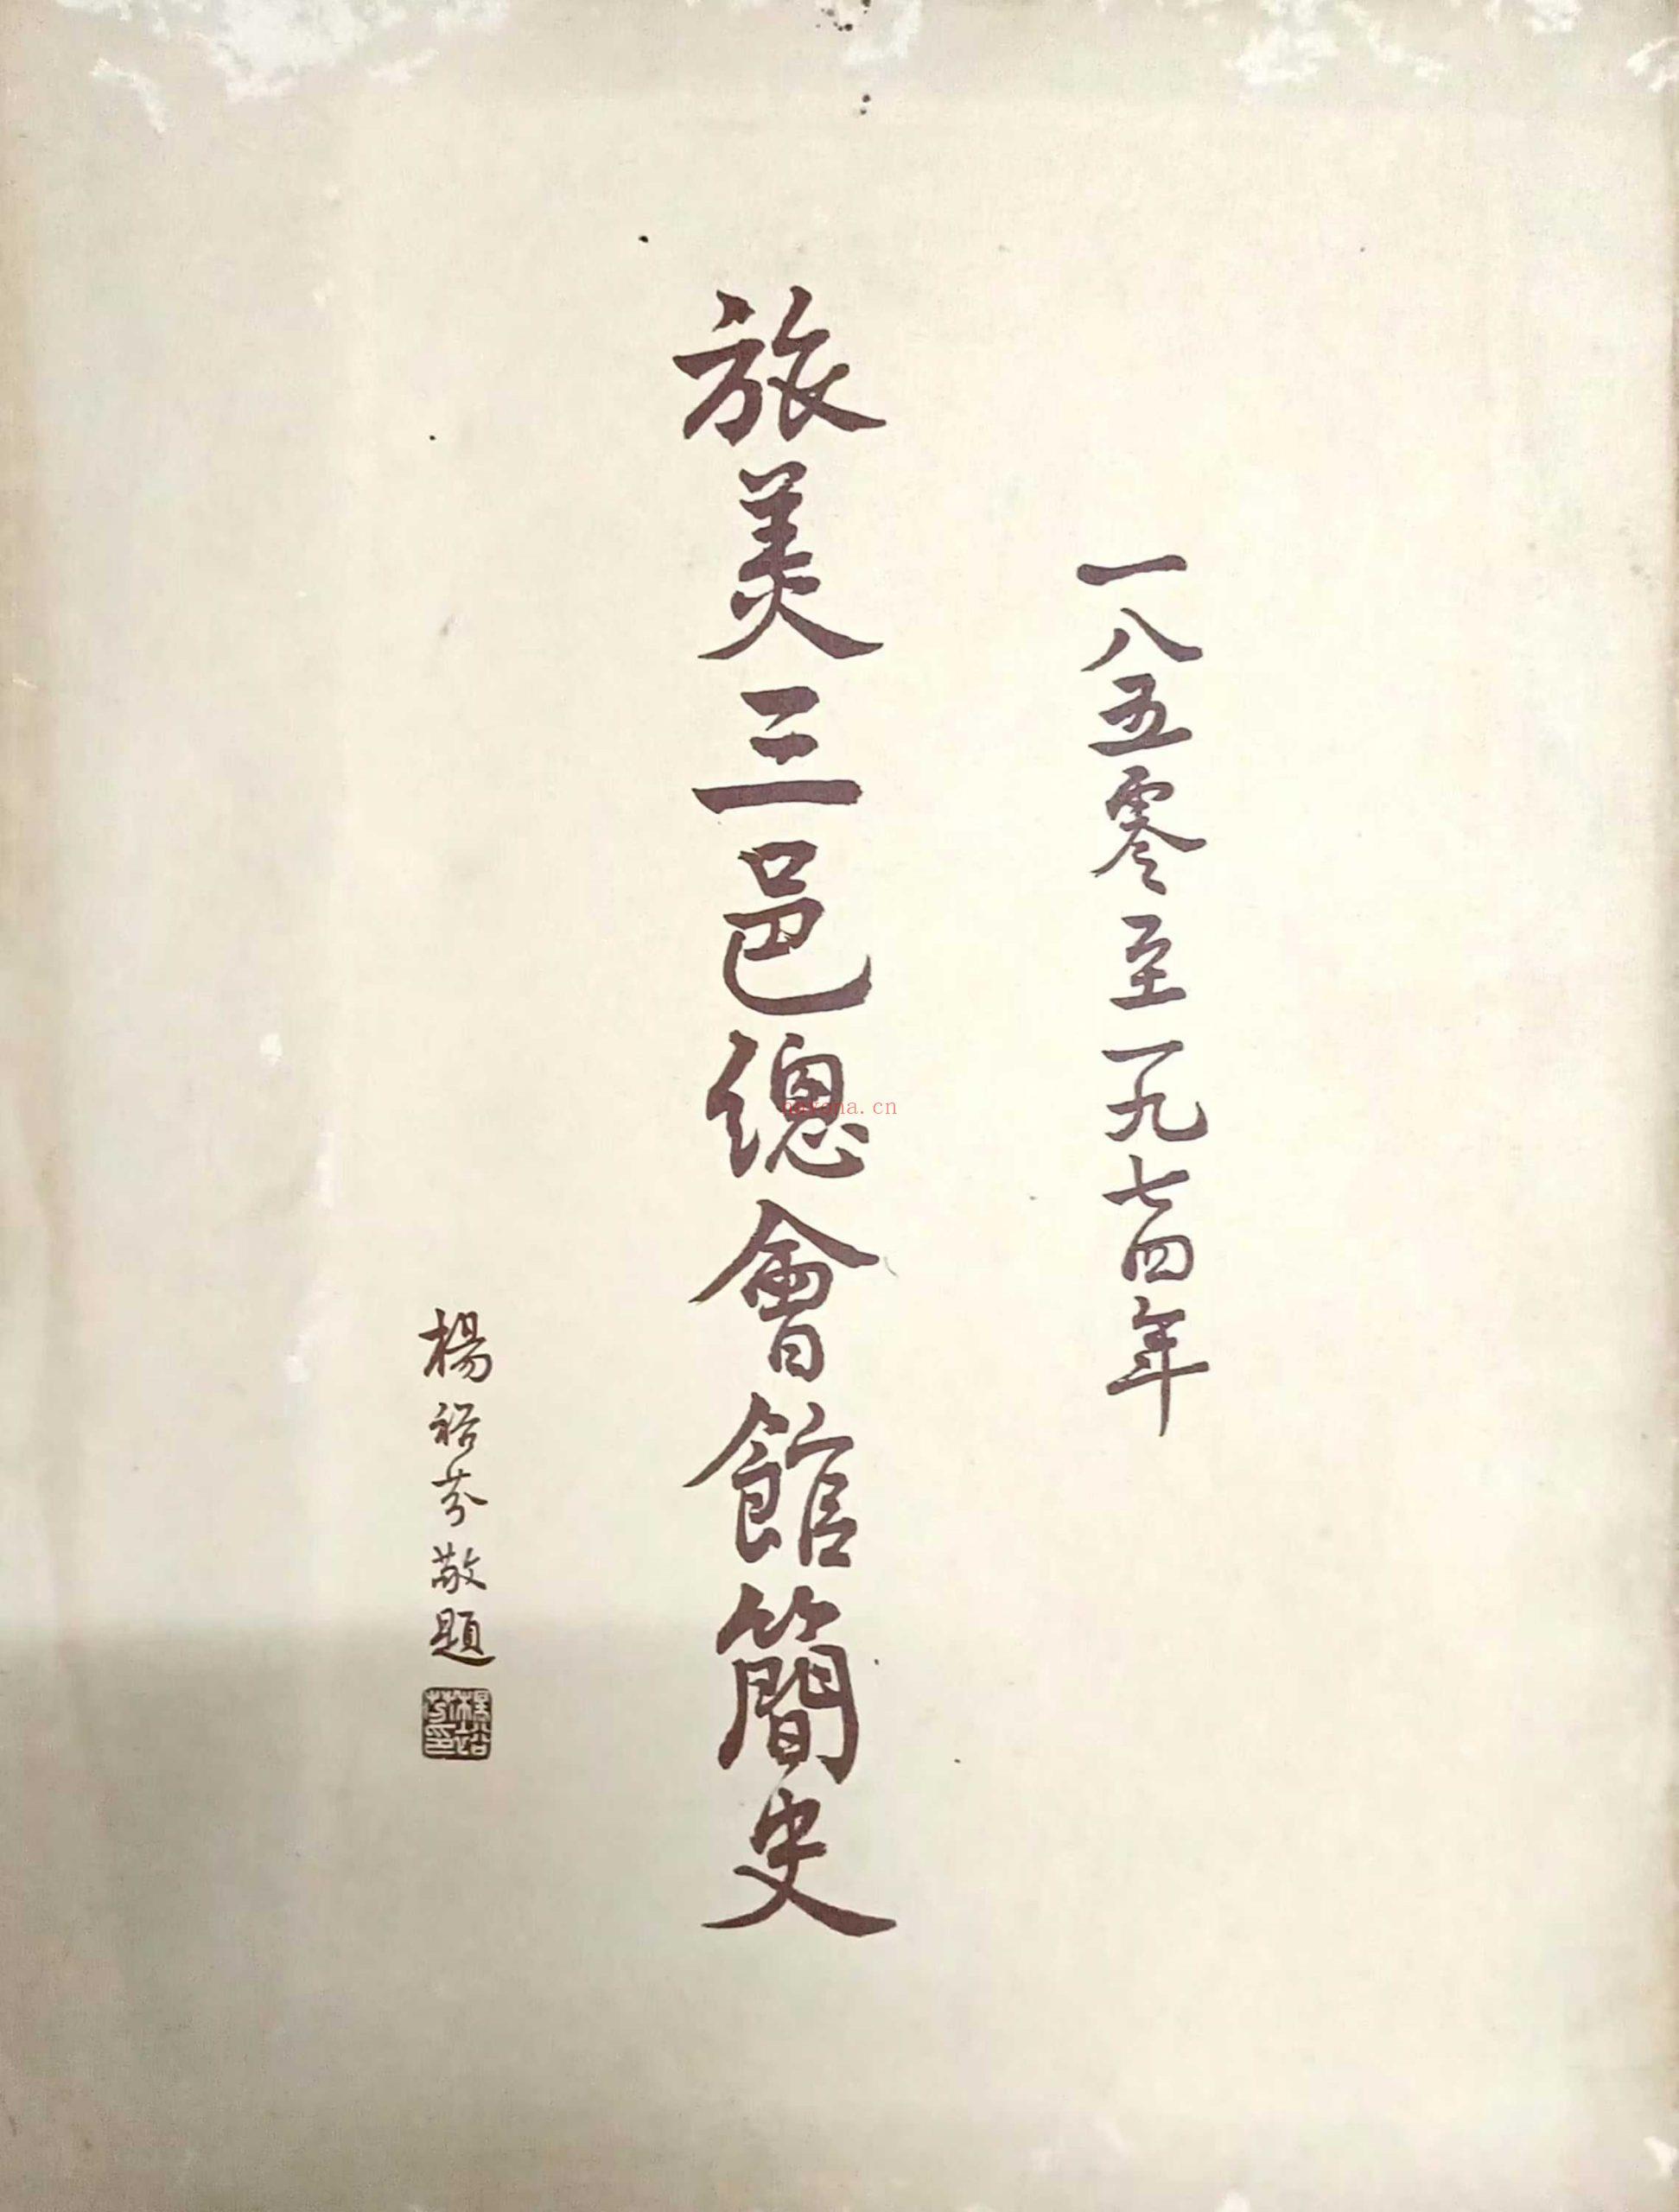 一八五零至一九七四年
旅美三邑總會館簡史
楊裕芬敬題
楊裕芬印